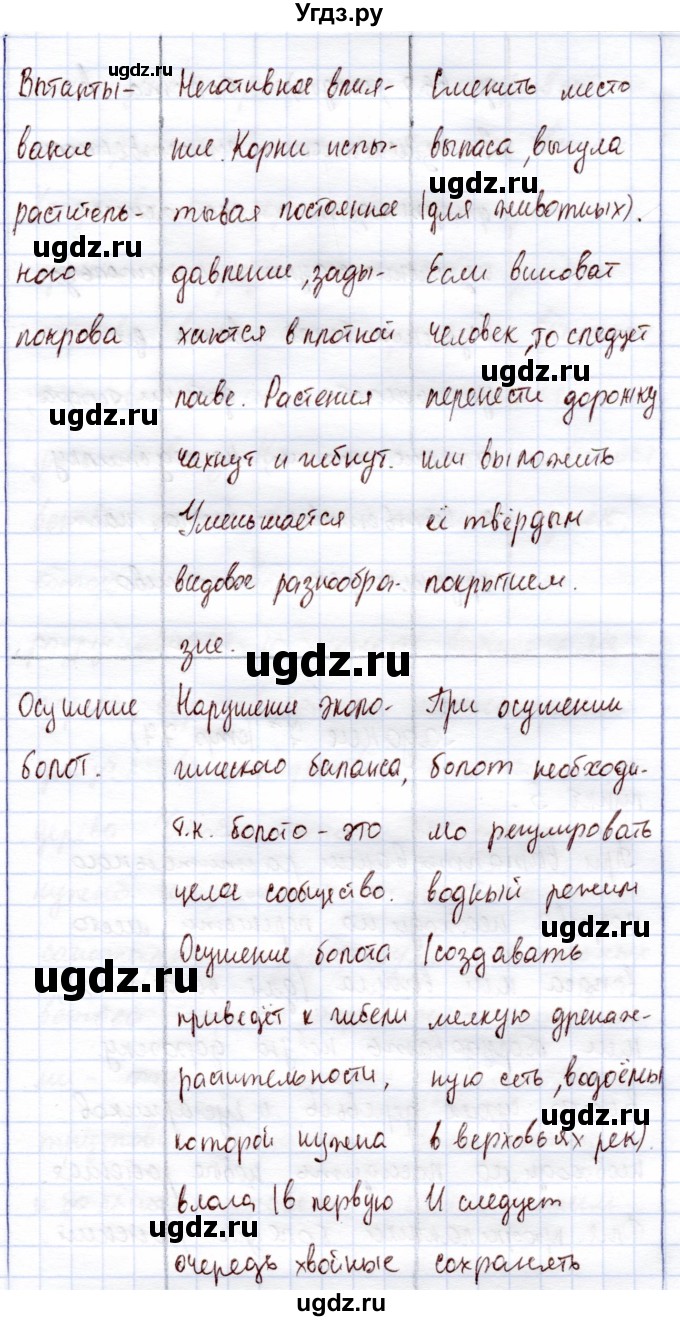 Угдз.ру
Вытапты-
вание
раститель-
ного
покрова
Негативное влия-
ние. Корни испы-
тывая постоянное
давление, зады-
хаются в плотной
почве. Растения
чахнут и гибнут.
Уменьшается
видовое разнообра-
зие.
Сменить место
выпаса, выгула
(для животных).
Если виноват
человек, то следует
перенести дорожку
или выложить
её твёрдым
покрытием.
Осушение
болот.
Нарушение эколо-
гического баланса,
т.к. болото - это
целое сообщество.
Осушение болота
приведёт к гибели
растительности,
которой нужна
влага (в первую
очередь хвойные
При осушении
болот необходи-
мо регулировать
водный режим
(создавать
мелкую дренаж-
ную сеть, водоёмы
в верховьях рек).
И следует
сохранять
ugdz.ru
ugdz.ru
ugdz.ru
ugdz.ru
ugdz.ru
ugdz.ru
ugdz.ru
ugdz.ru
ugdz.ru
ugdz.ru
ugdz.ru